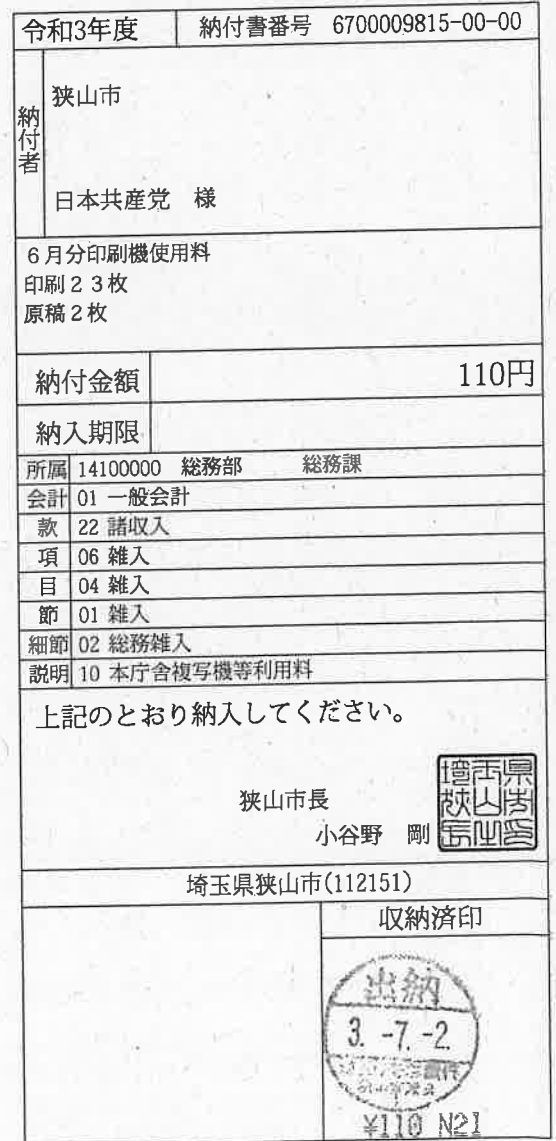 令和3年度 納付書番号 6700009815-00-00
納付者
狭山市
日本共産党 様
6月分印刷機使用料
印刷23枚
原稿2枚
納付金額 110円
納入期限
所属 14100000 総務部 総務課
会計 01 一般会計
款 22 諸収入
項 06 雑入
目 04 雑入
節 01 雑入
細節 02 総務雑入
説明 10 本庁舎複写機等利用料
上記のとおり納入してください。
狭山市長
小谷野 剛
埼玉県狭山市(112151)
収納済印
出納
3.-7.-2
¥110 N21